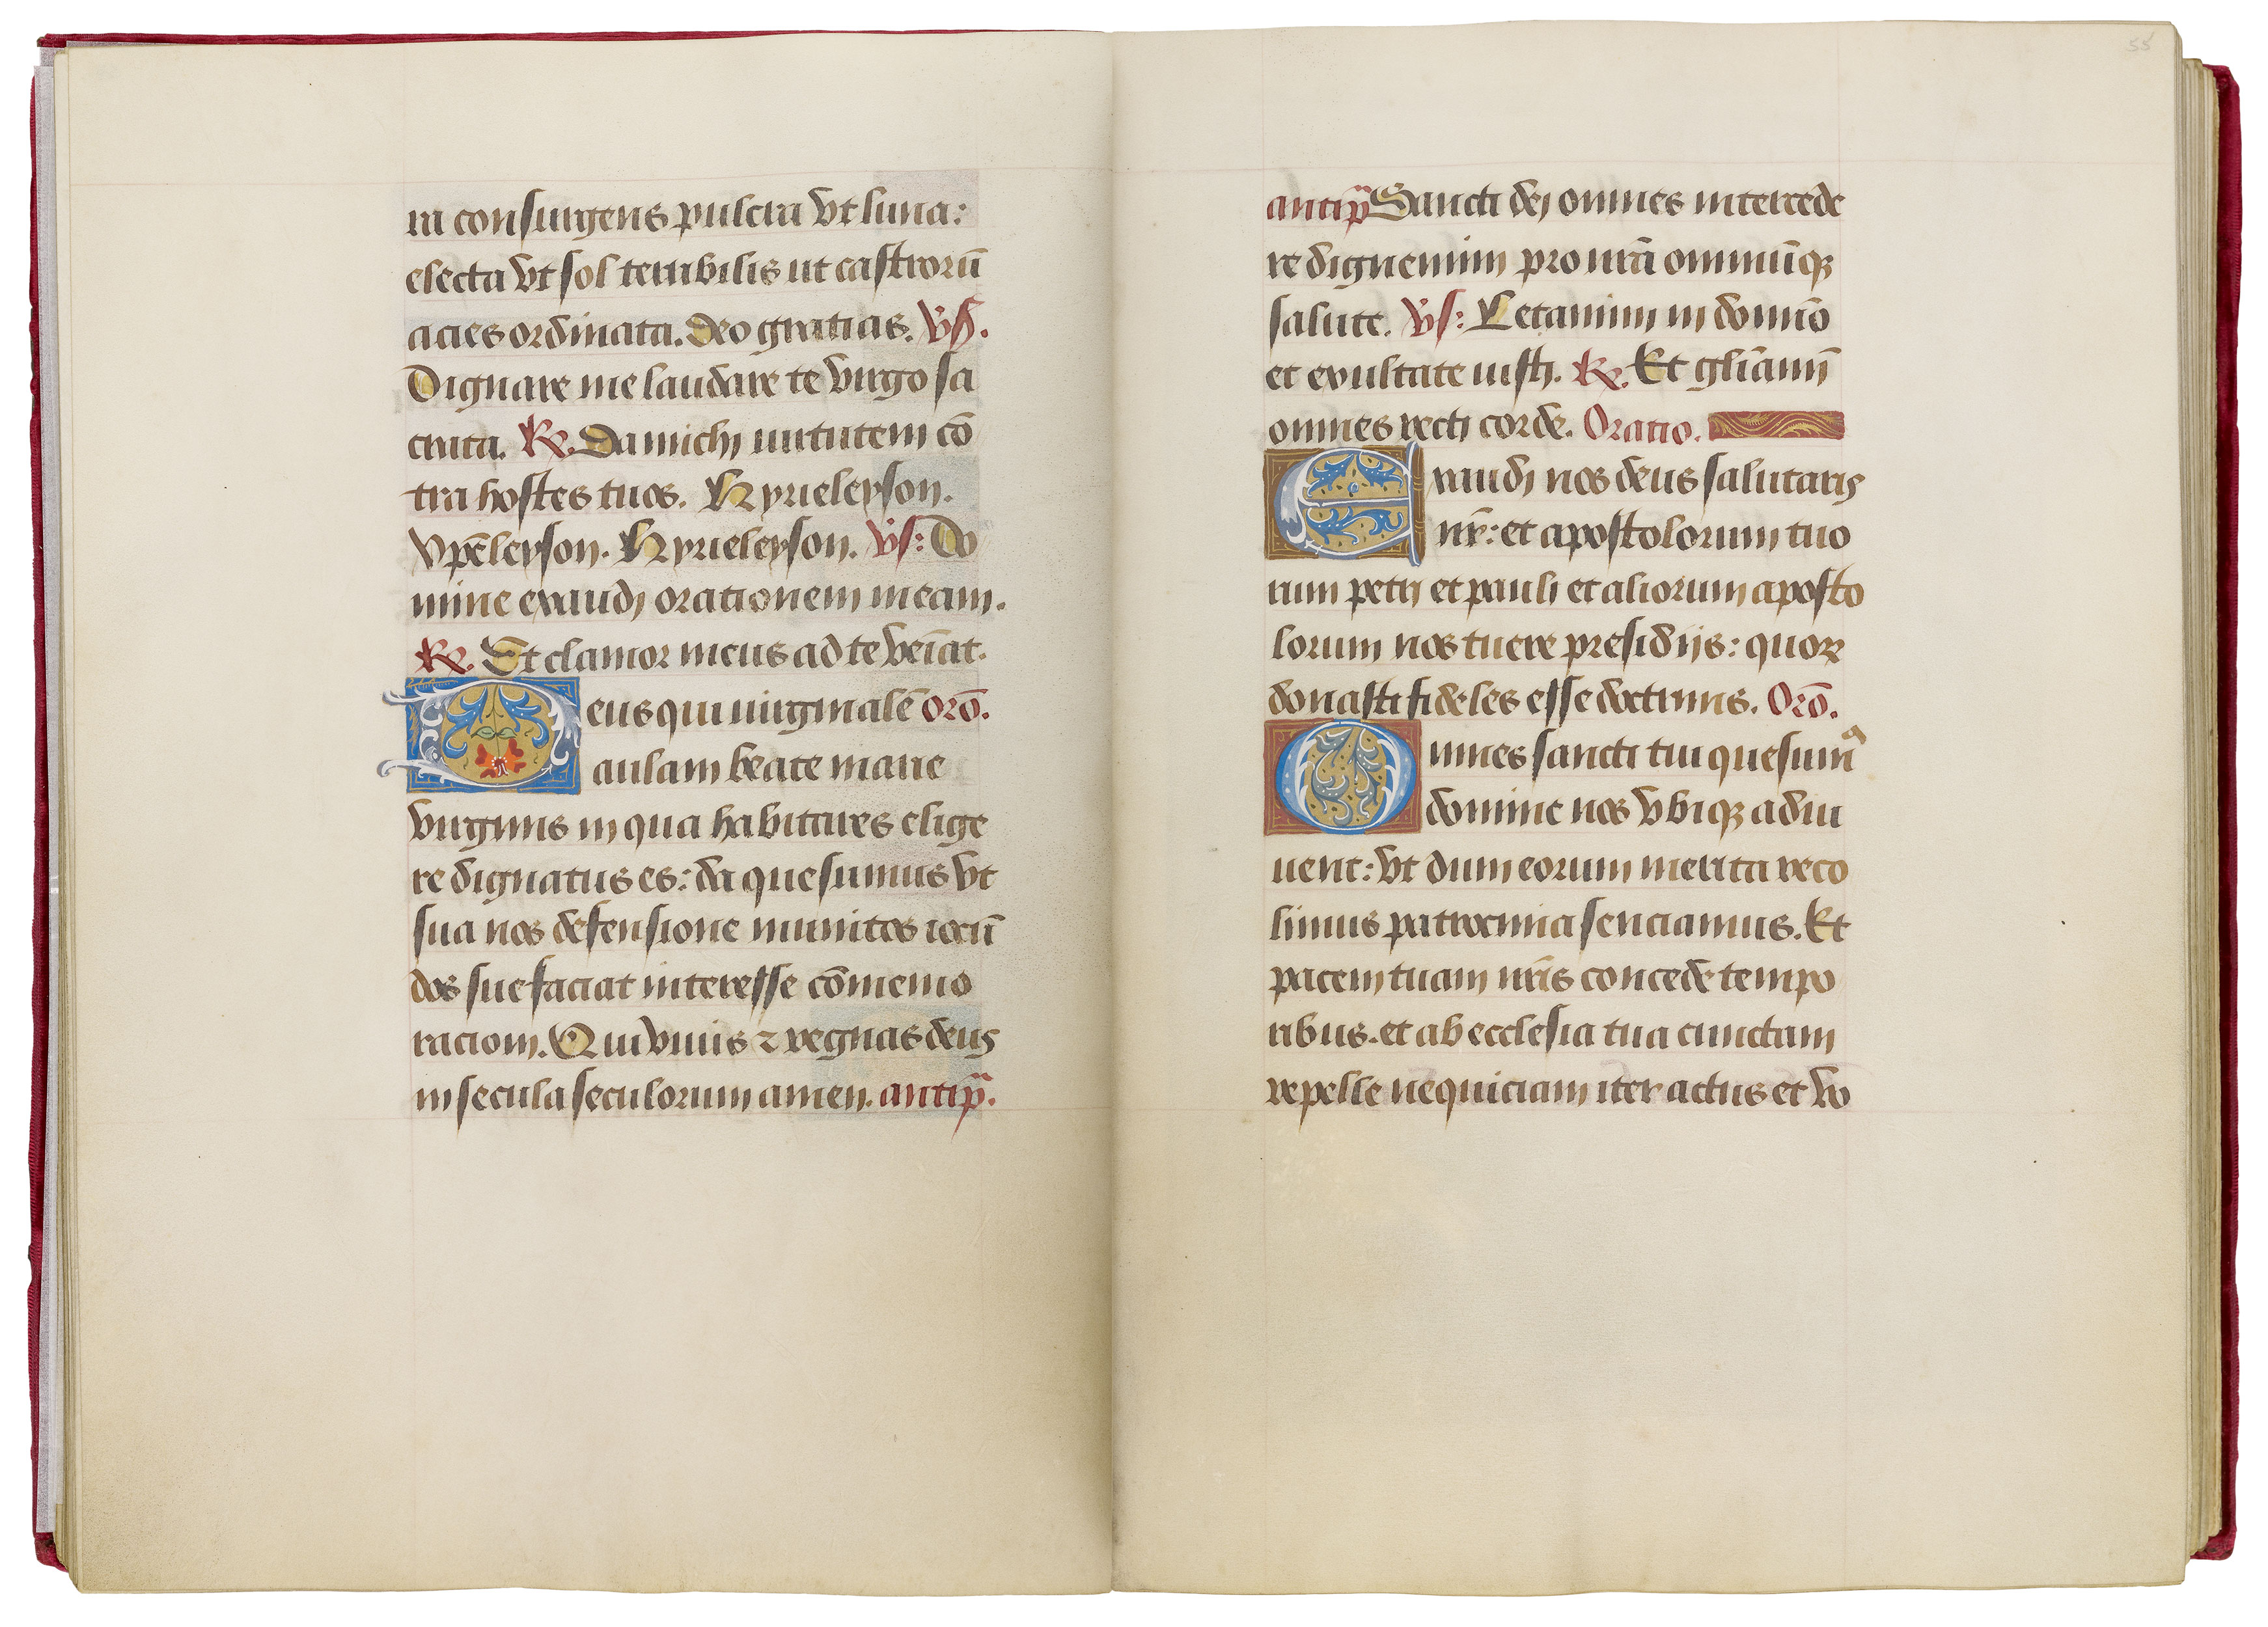 ra consurgens pulcra vt luna:
electa vt sol terribilis ut castrorū
acies ordinata. Deo gratias. v̄s.
Dignare me laudare te virgo sa
crata. R̸. Da michi uirtutem cō
tra hostes tuos. Kyrieleyson.
Xp̄eleyson. Kyrieleyson. v̄s: Do
mine exaudi orationem meam.
R̸. Et clamor meus ad te veniat.
Deus qui uirginalē Orō.
aulam beate marie
virginis in qua habitares elige
re dignatus es: da quesumus vt
sua nos defensione munitos iocū
dos sue faciat interesse cōmemo
racioni. Qui viuis ⁊ regnas deus
in secula seculorum amen. antip̄.
55
antip̄ Sancti dei omnes intercede
re dignemini pro nr̄a omniūqꝫ
salute. v̄s: Letamini in domīo
et exultate iusti. R̸. Et gl̄iamī
omnes recti corde. Oratio.
Exaudi nos deus salutaris
nr̄: et apostolorum tuo
rum petri et pauli et aliorum aposto
lorum nos tuere presidijs: quoꝝ
donasti fideles esse doctrinis. Orō.
Omnes sancti tui quesumꝰ
domine nos vbiqꝫ adiu
uent: vt dum eorum merita reco
limus patrocinia senciamus. Et
pacem tuam nr̄is concede tempo
ribus. et ab ecclesia tua cunctam
repelle nequiciam iter actus et vo